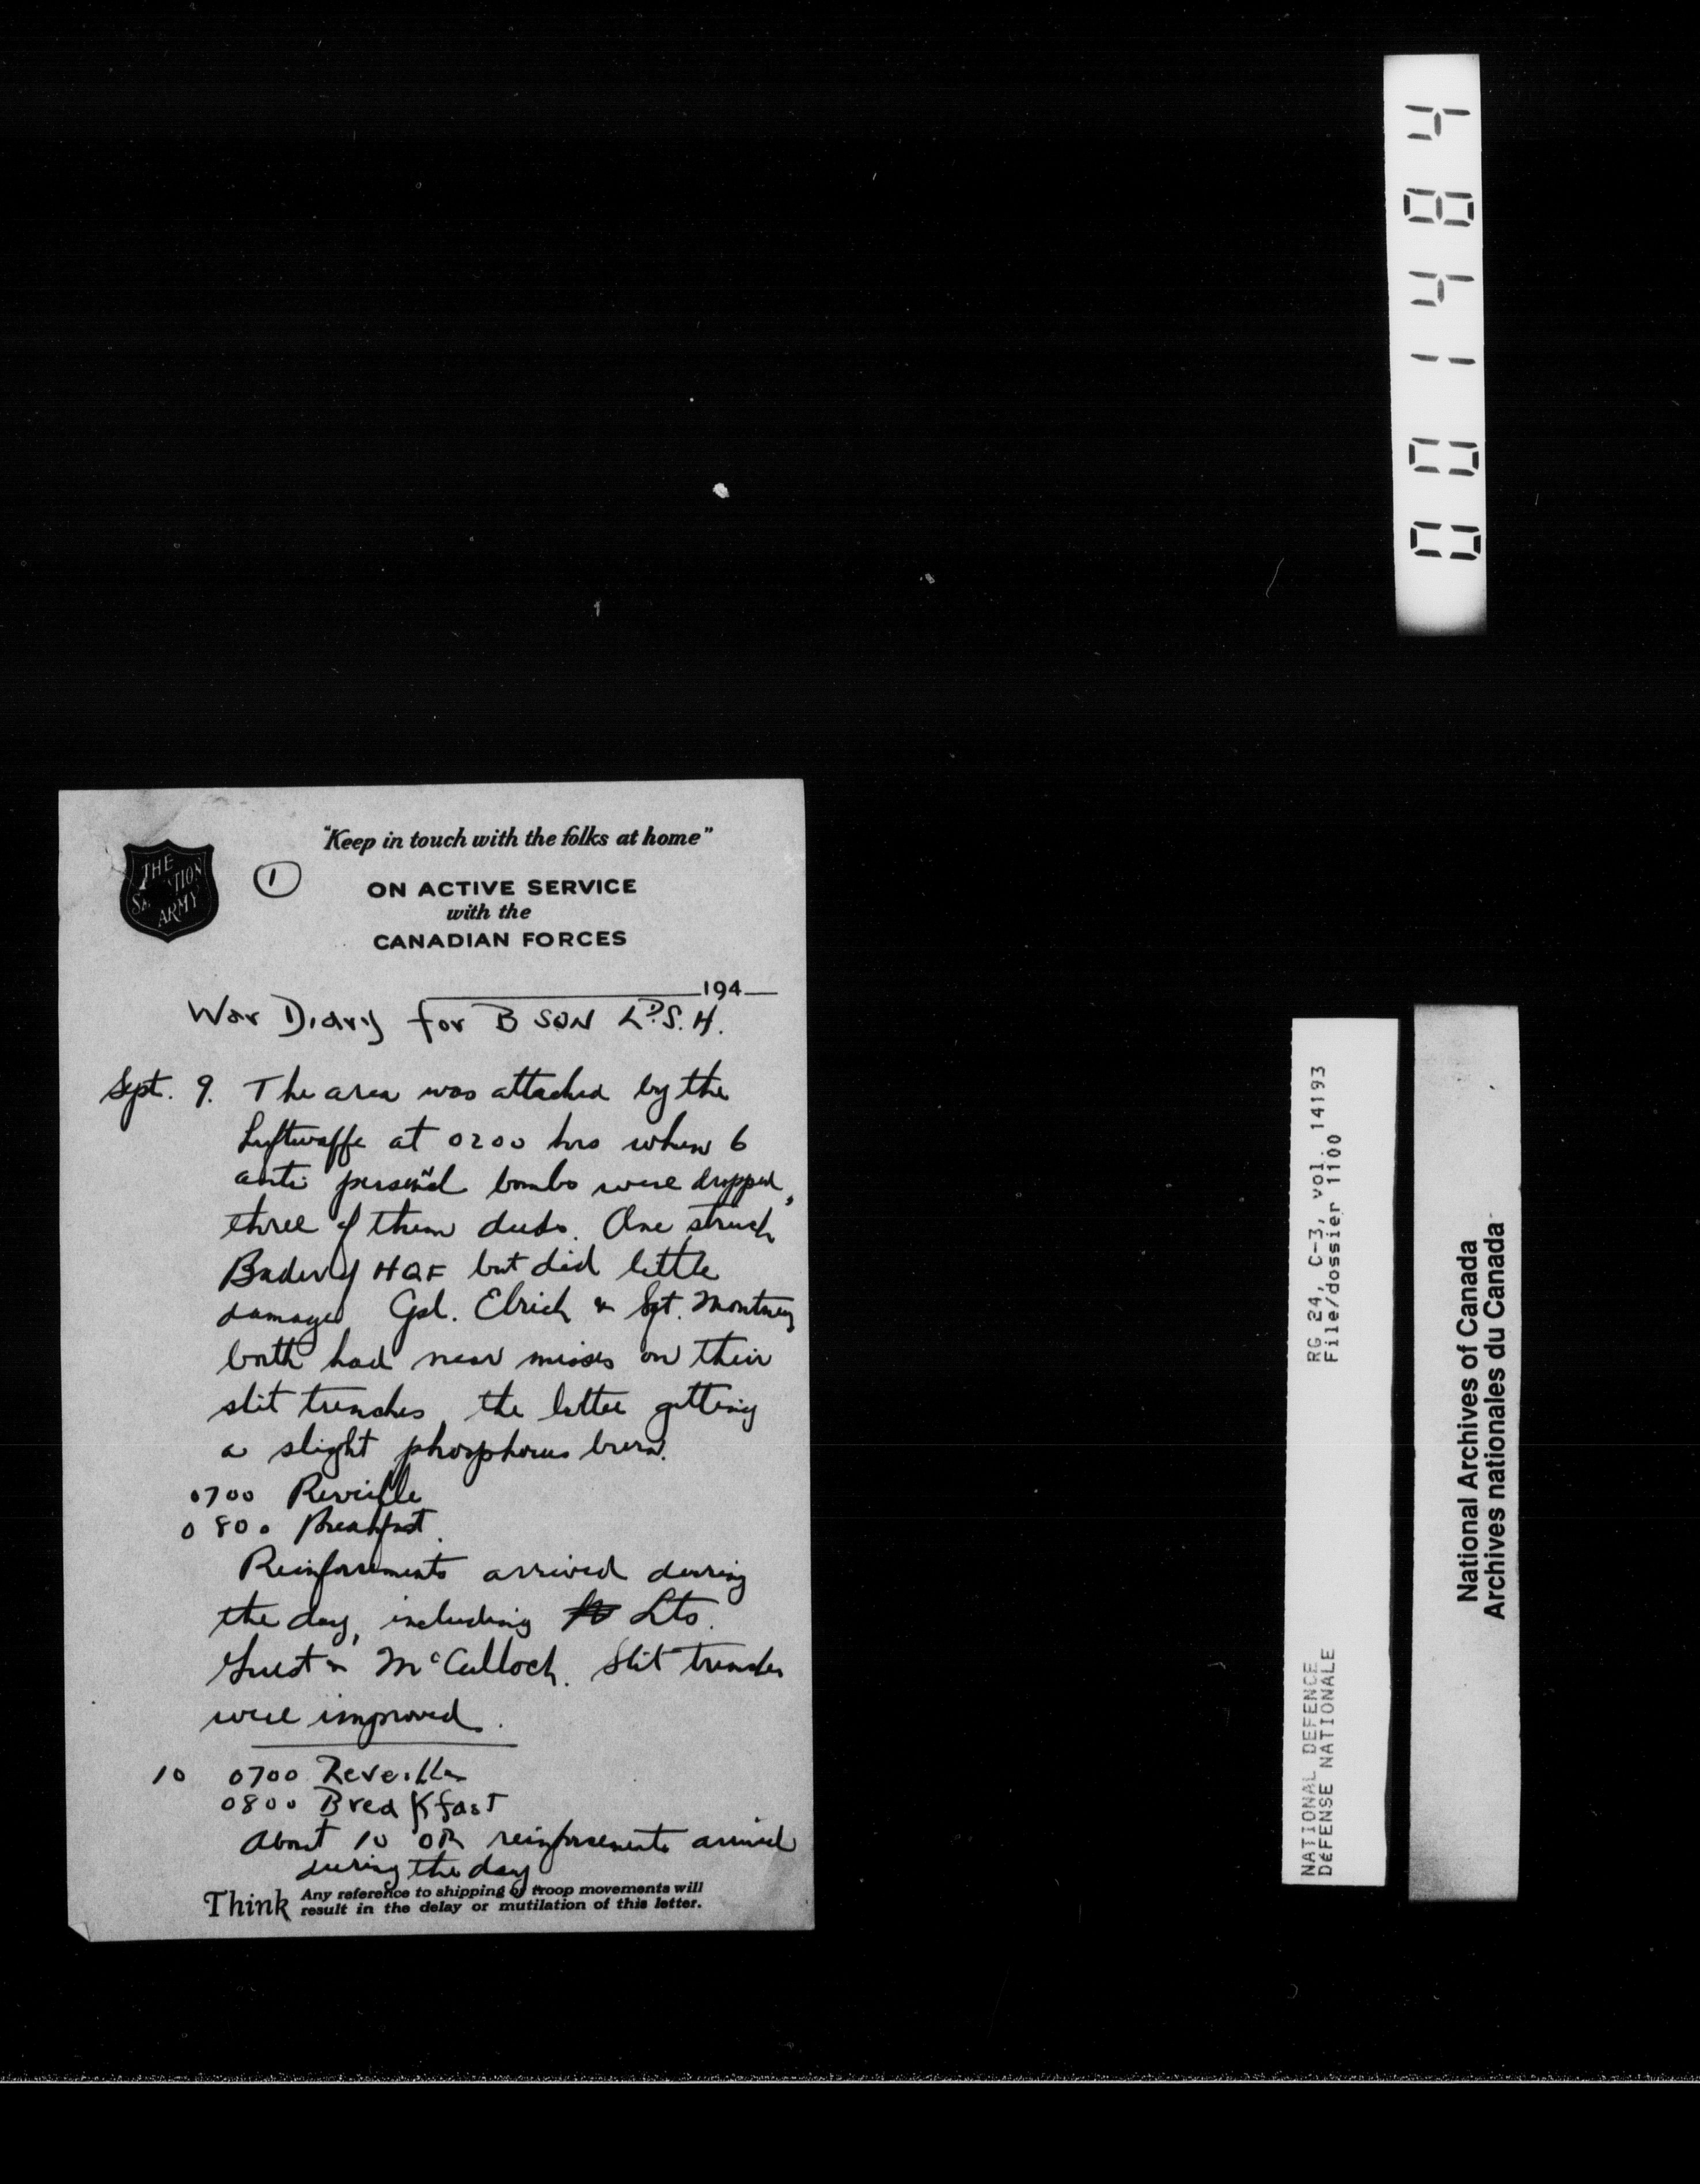 "Keep in touch with the folks at home"
THE SALVATION ARMY
1
ON ACTIVE SERVICE
with the
CANADIAN FORCES
194
War Diary for B SQN LD.S.H.
Sept. 9. The area was attacked by the
Luftwaffe at 0200 hrs when 6
anti personnel bombs were dropped,
three of them duds. One struck
HQF but did little
damage. Cpl. Elrich & Sgt. Montney
both had near misses on their
slit trenches, the latter getting
a slight phosphorus burn.
0700 Reveille
0800 Breakfast.
Reinforcements arrived during
the day, including Lts.
& McCulloch. Slit trenches
were improved.
10 0700 Reveille
0800 Breakfast
About 10 OR reinforcements arrived
during the day
Think Any reference to shipping or troop movements will
result in the delay or mutilation of this letter.
001484
RG 24, C-3, vol. 14193
File/dossier 1100
NATIONAL DEFENCE
DÉFENSE NATIONALE
National Archives of Canada
Archives nationales du Canada